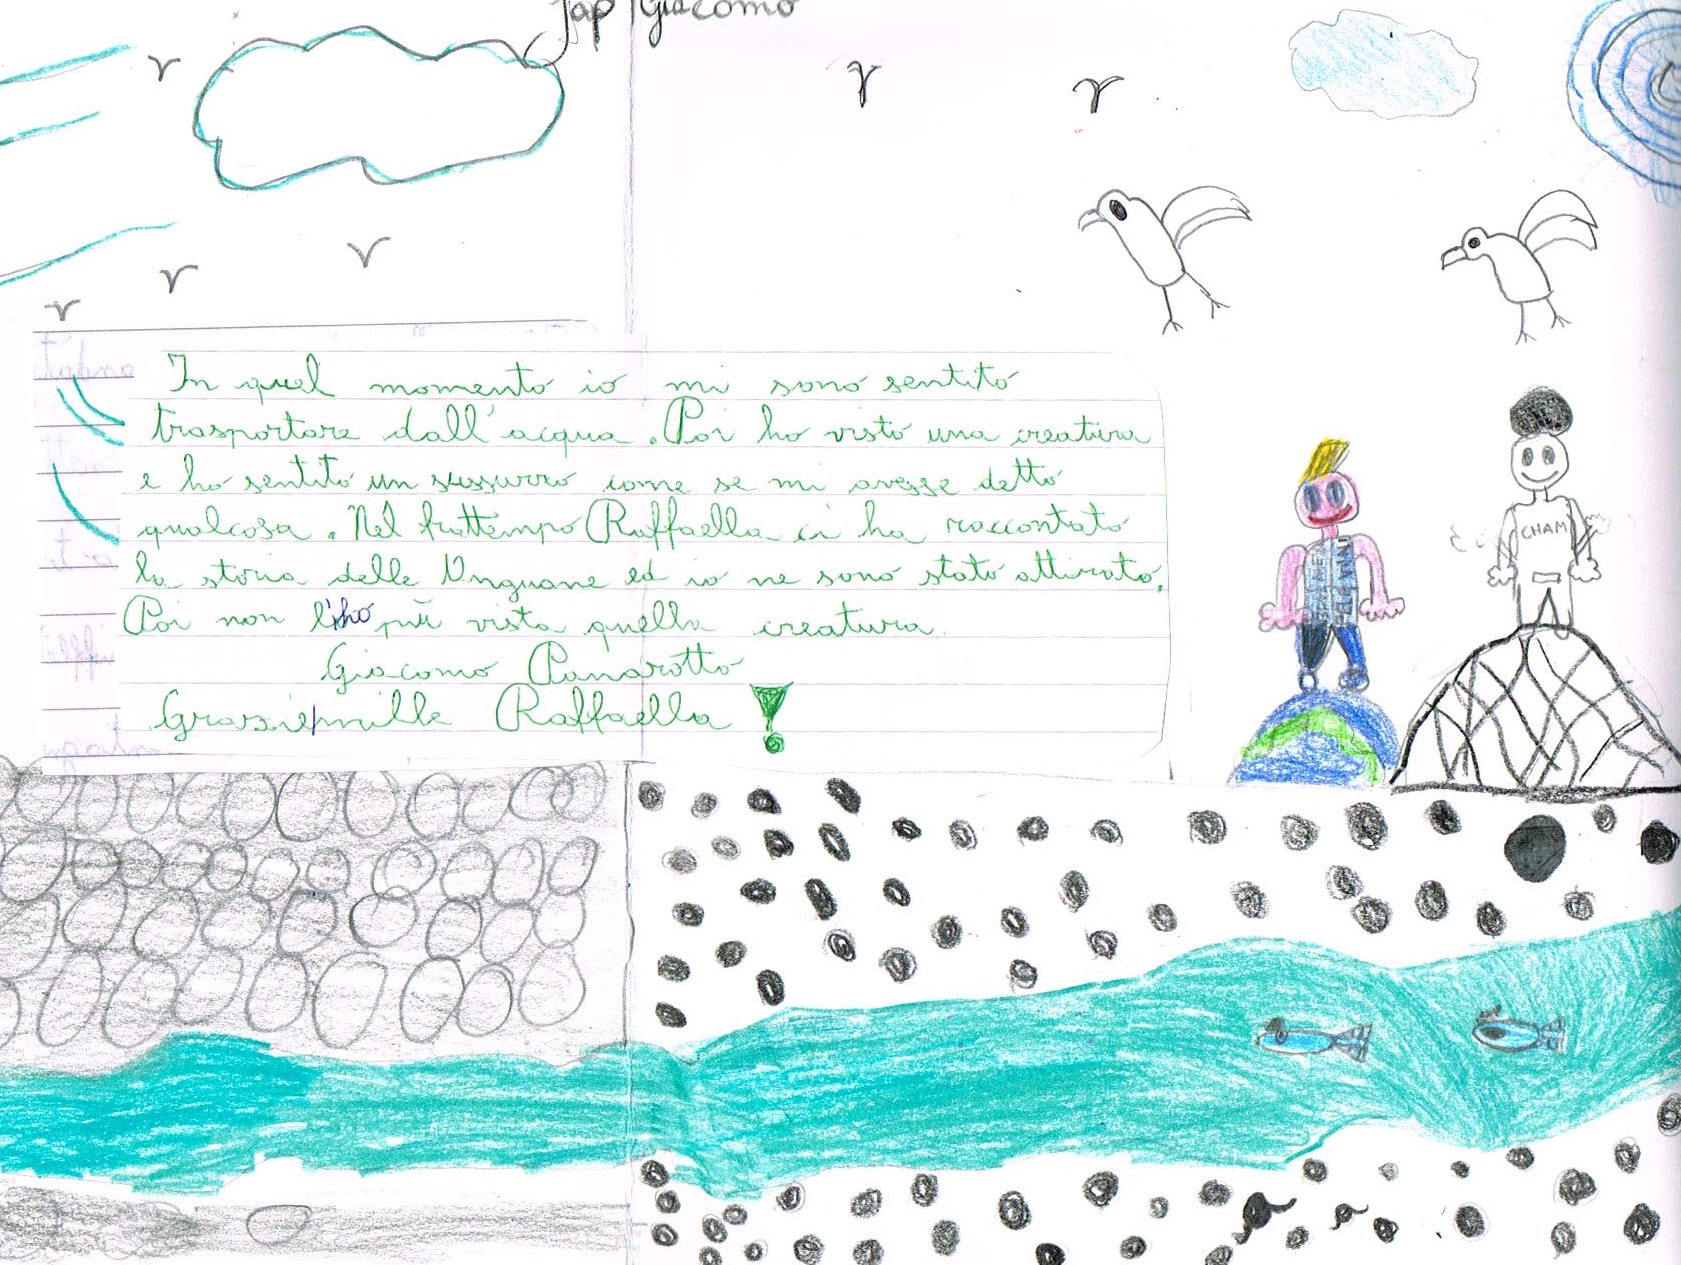 Jap Giacomo
In quel momento io mi sono sentito
trasportare dall'acqua. Poi ho visto una creatura
e ho sentito un sussurro come se mi avesse detto
qualcosa. Nel frattempo Raffaella ci ha raccontato
la storia delle Anguane ed io ne sono stato attirato.
Poi non l'ho più vista quella creatura.
Giacomo Panarotto
Grazie mille Raffaella !
CHAM